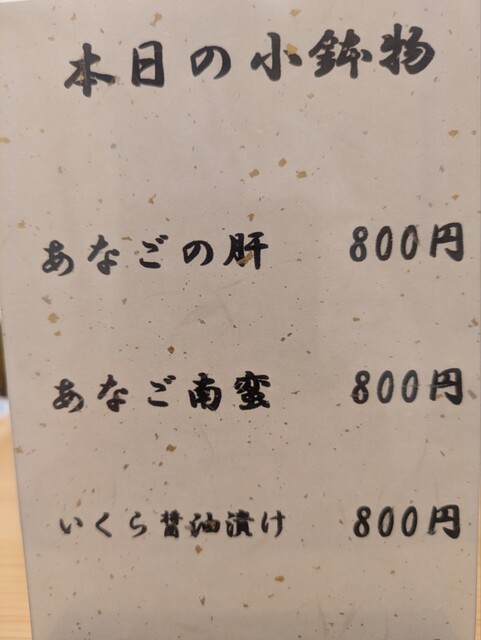 本日の小鉢物
あなごの肝 800円
あなご南蛮 800円
いくら醤油漬け 800円